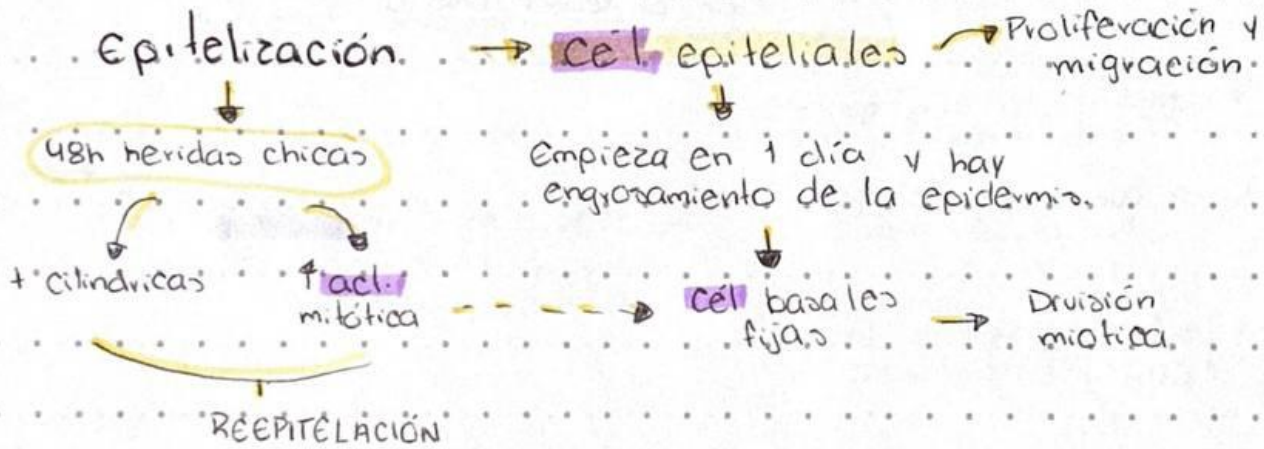 Epitelización
cél epiteliales
Proliferación y
migración.
48h heridas chicas
Empieza en 1 día y hay
engrosamiento de la epidermis.
+ cilíndricas
↑ act.
mitótica
cél basales
fijas
División
miotica.
REEPITELACIÓN